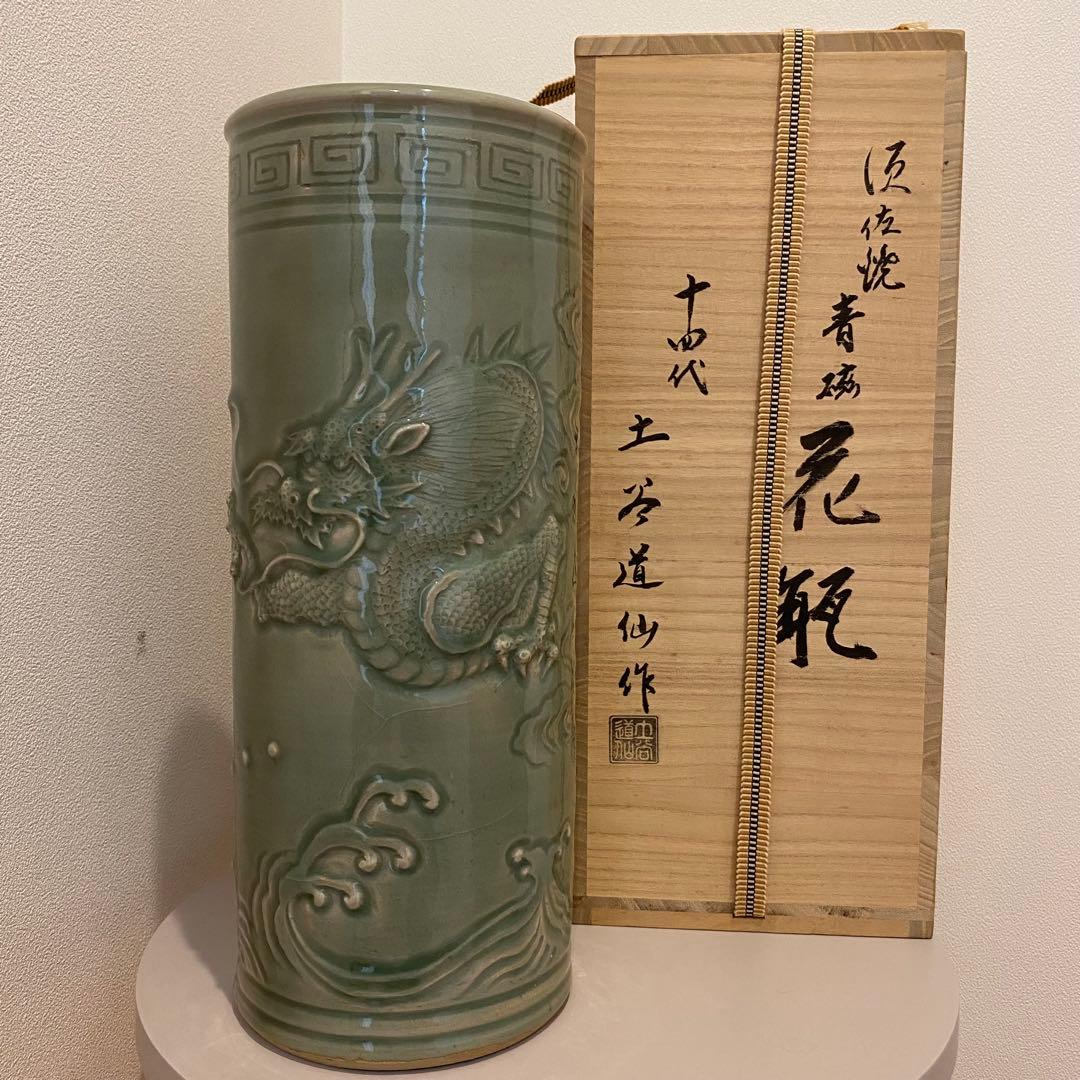 須佐焼
青磁
花瓶
十四代
土谷道仙作
土谷
道仙